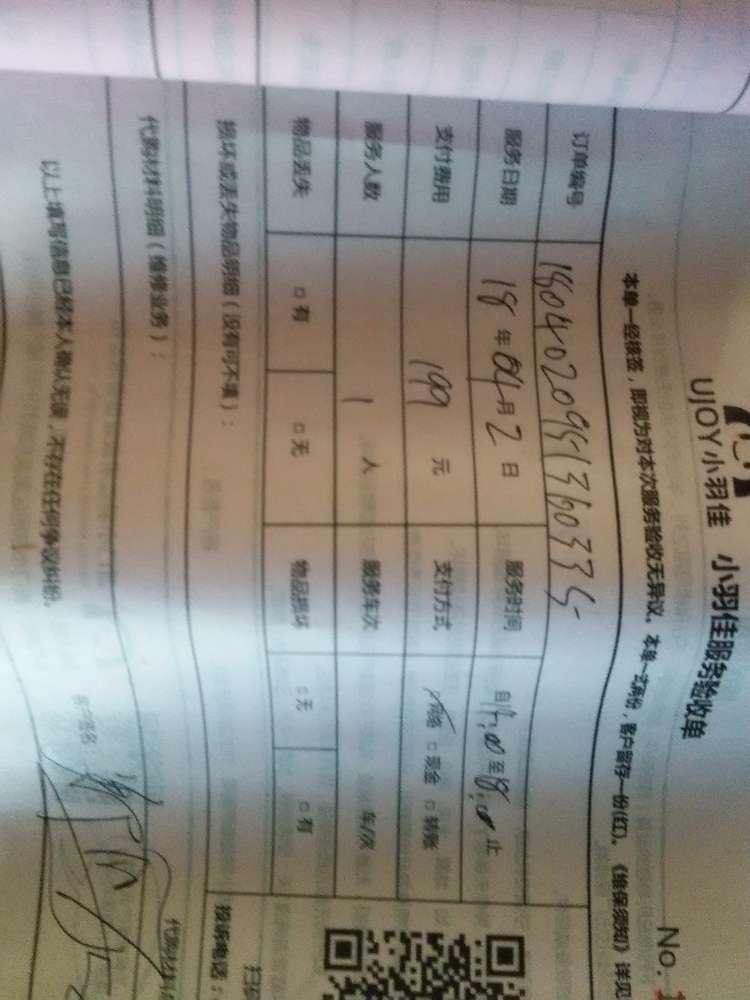 UJOY小羽佳 小羽佳服务验收单
No.
本单一经接签，即视为对本次服务验收无异议。本单一式两份，客户留存一份(红)。《维保须知》详见
订单编号
服务日期 18 年 04 月 2 日 服务时间 自 至 18:00 止
支付费用 199 元 支付方式 □现金 □转账
服务人数 1 人 服务车次 车/次
物品丢失 □有 □无 物品损坏 □无 □有
损坏或丢失物品明细（没有可不填）：
投诉电话：
代购材料明细（维修业务）：
以上填写信息已经本人确认无误，不存在任何争议纠纷。